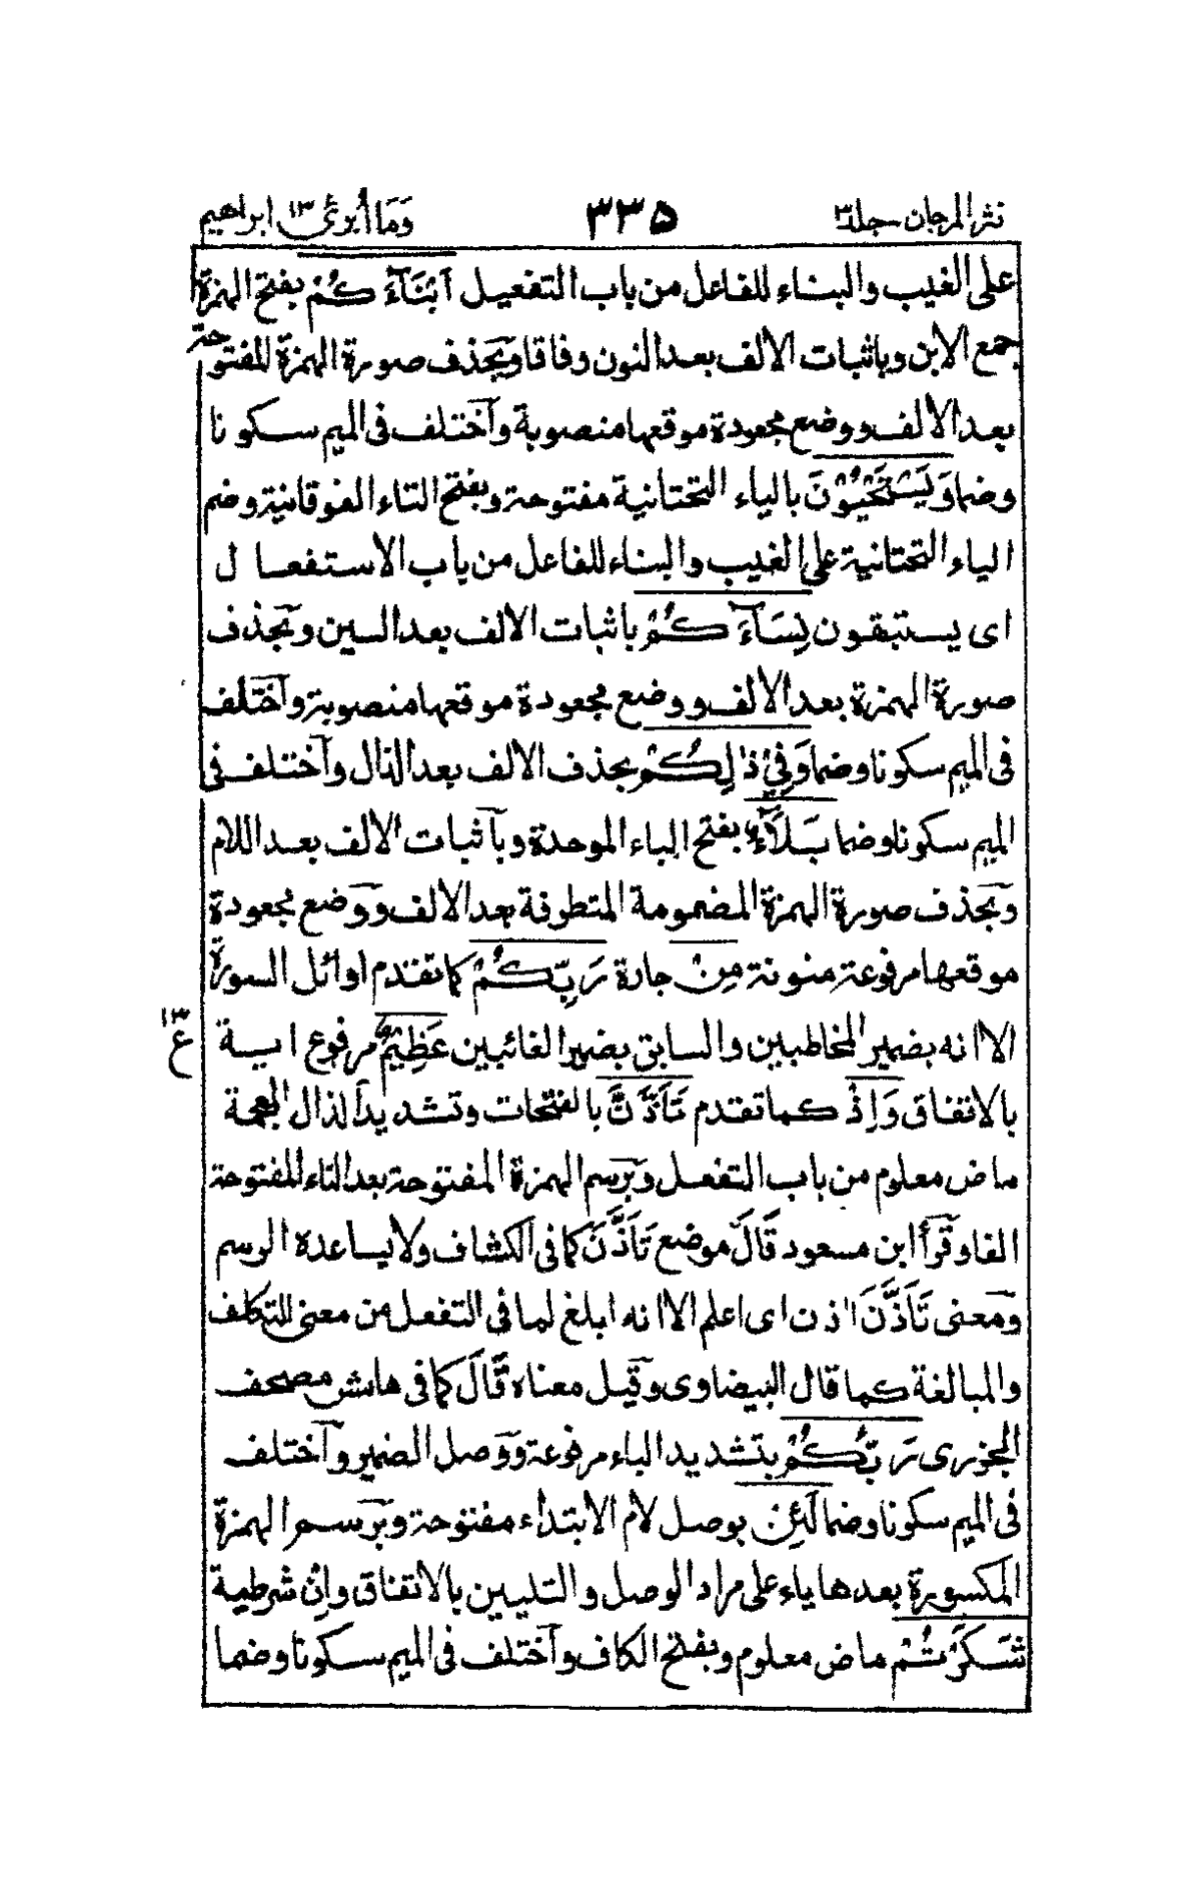 نثر المرجان جلد ٣ ٣٣٥ وَمَا أُبَرِّئُ ١٣ ابراهيم
على الغيب والبناء للفاعل من باب التفعيل أَبْنَآءَكُمْ بفتح الهمزة
جمع الابن وباثبات الالف بعد النون وفاقا وبحذف صورة الهمزة المفتوحة
بعد الالف ووضع مجعودة موقعها منصوبة وآختلف فى الميم سكونا
وضما وَيَسْتَحْيُوْنَ بالياء التحتانية مفتوحة وبفتح التاء الفوقانية وضم
الياء التحتانية على الغيب والبناء للفاعل من باب الاستفعال
اى يستبقون نِسَآءَكُمْ باثبات الالف بعد السين وبحذف
صورة الهمزة بعد الالف ووضع مجعودة موقعها منصوبة وآختلف
فى الميم سكونا وضما وَفِيْ ذٰلِكُمْ بحذف الالف بعد الذال وآختلف فى
الميم سكونا وضما بَلَآءٌ بفتح الباء الموحدة وبآثبات الالف بعد اللام
وبحذف صورة الهمزة المضمومة المتطرفة بعد الالف ووضع مجعودة
موقعها مرفوعة منونة مِنْ جارة رَبِّكُمْ كما تقدم اوائل السورة
الا انه بضمير المخاطبين والسابق بضمير الغائبين عَظِيْمٌ مرفوع اٰية
١٣
ع
بالاتفاق وَاِذْ كما تقدم تَأَذَّنَ بالفتحات وتشديد الذال المعجمة
ماض معلوم من باب التفعل وبرسم الهمزة المفتوحة بعد التاء المفتوحة
الفا وقرأ ابن مسعود قَالَ موضع تَأَذَّنَ كما فى الكشاف ولا يساعده الرسم
ومعنى تَأَذَّنَ اٰذن اى اعلم الا انه ابلغ لما فى التفعل من معنى التكلف
والمبالغة كما قال البيضاوى وقيل معناه قَالَ كما فى هامش مصحف
الجزرى رَبُّكُمْ بتشديد الباء مرفوعة ووصل الضمير وآختلف
فى الميم سكونا وضما لَئِنْ بوصل لام الابتداء مفتوحة وبرسم الهمزة
المكسورة بعدها ياء على مراد الوصل والتليين بالاتفاق وان شرطية
شَكَرْتُمْ ماض معلوم وبفتح الكاف وآختلف فى الميم سكونا وضما